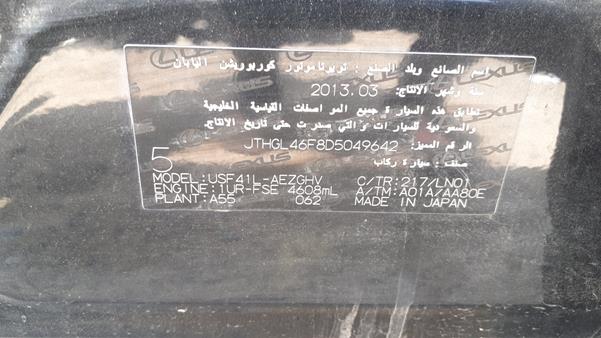 اسم الصانع وبلد الصنع : تويوتا موتور كوربوريشن اليابان
سنة وشهر الانتاج: 2013.03
تطابق هذه السيارة جميع المواصفات القياسية الخليجية
والسعودية للسيارات والتي صدرت حتى تاريخ الانتاج.
الرقم المميز: JTHGL46F8D5049642
صنف: سيارة ركاب
5
MODEL:USF41L-AEZGHV C/TR:217/LN01
ENGINE:1UR-FSE 4608mL A/TM:A01A/AA80E
PLANT:A55 062 MADE IN JAPAN
LEXUS